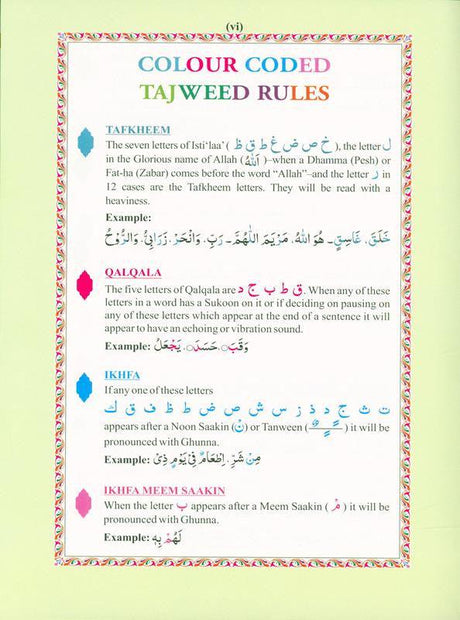 (vi)
COLOUR CODED
TAJWEED RULES
TAFKHEEM
The seven letters of Isti‘laa’ ( خ ص ض غ ط ق ظ ), the letter ل
in the Glorious name of Allah ( اَللّٰهُ ) –when a Dhamma (Pesh) or
Fat-ha (Zabar) comes before the word “Allah”–and the letter ر in
12 cases are the Tafkheem letters. They will be read with a
heaviness.
Example:
خَلَقَ، غَاسِقٍ۔ هُوَ اللّٰهُ، مَرْيَمَ اللّٰهُمَّ۔ رَبِّ، وَانْحَرْ، زَرَابِيُّ، وَالرُّوْحُ
QALQALA
The five letters of Qalqala are ق ط ب ج د. When any of these
letters in a word has a Sukoon on it or if deciding on pausing on
any of these letters which appear at the end of a sentence it will
appear to have an echoing or vibration sound.
Example: وَقَبَ، حَسَدَ، يَجْعَلُ
IKHFA
If any one of these letters
ت ث ج د ذ ز س ش ص ض ط ظ ف ق ك
appears after a Noon Saakin ( نْ ) or Tanween ( ـًـٍـٌ ) it will be
pronounced with Ghunna.
Example: مِنْ شَرِّ، اِطْعَامٌ فِيْ يَوْمٍ ذِيْ
IKHFA MEEM SAAKIN
When the letter ب appears after a Meem Saakin ( مْ ) it will be
pronounced with Ghunna.
Example: لَهُمْ بِهٖ